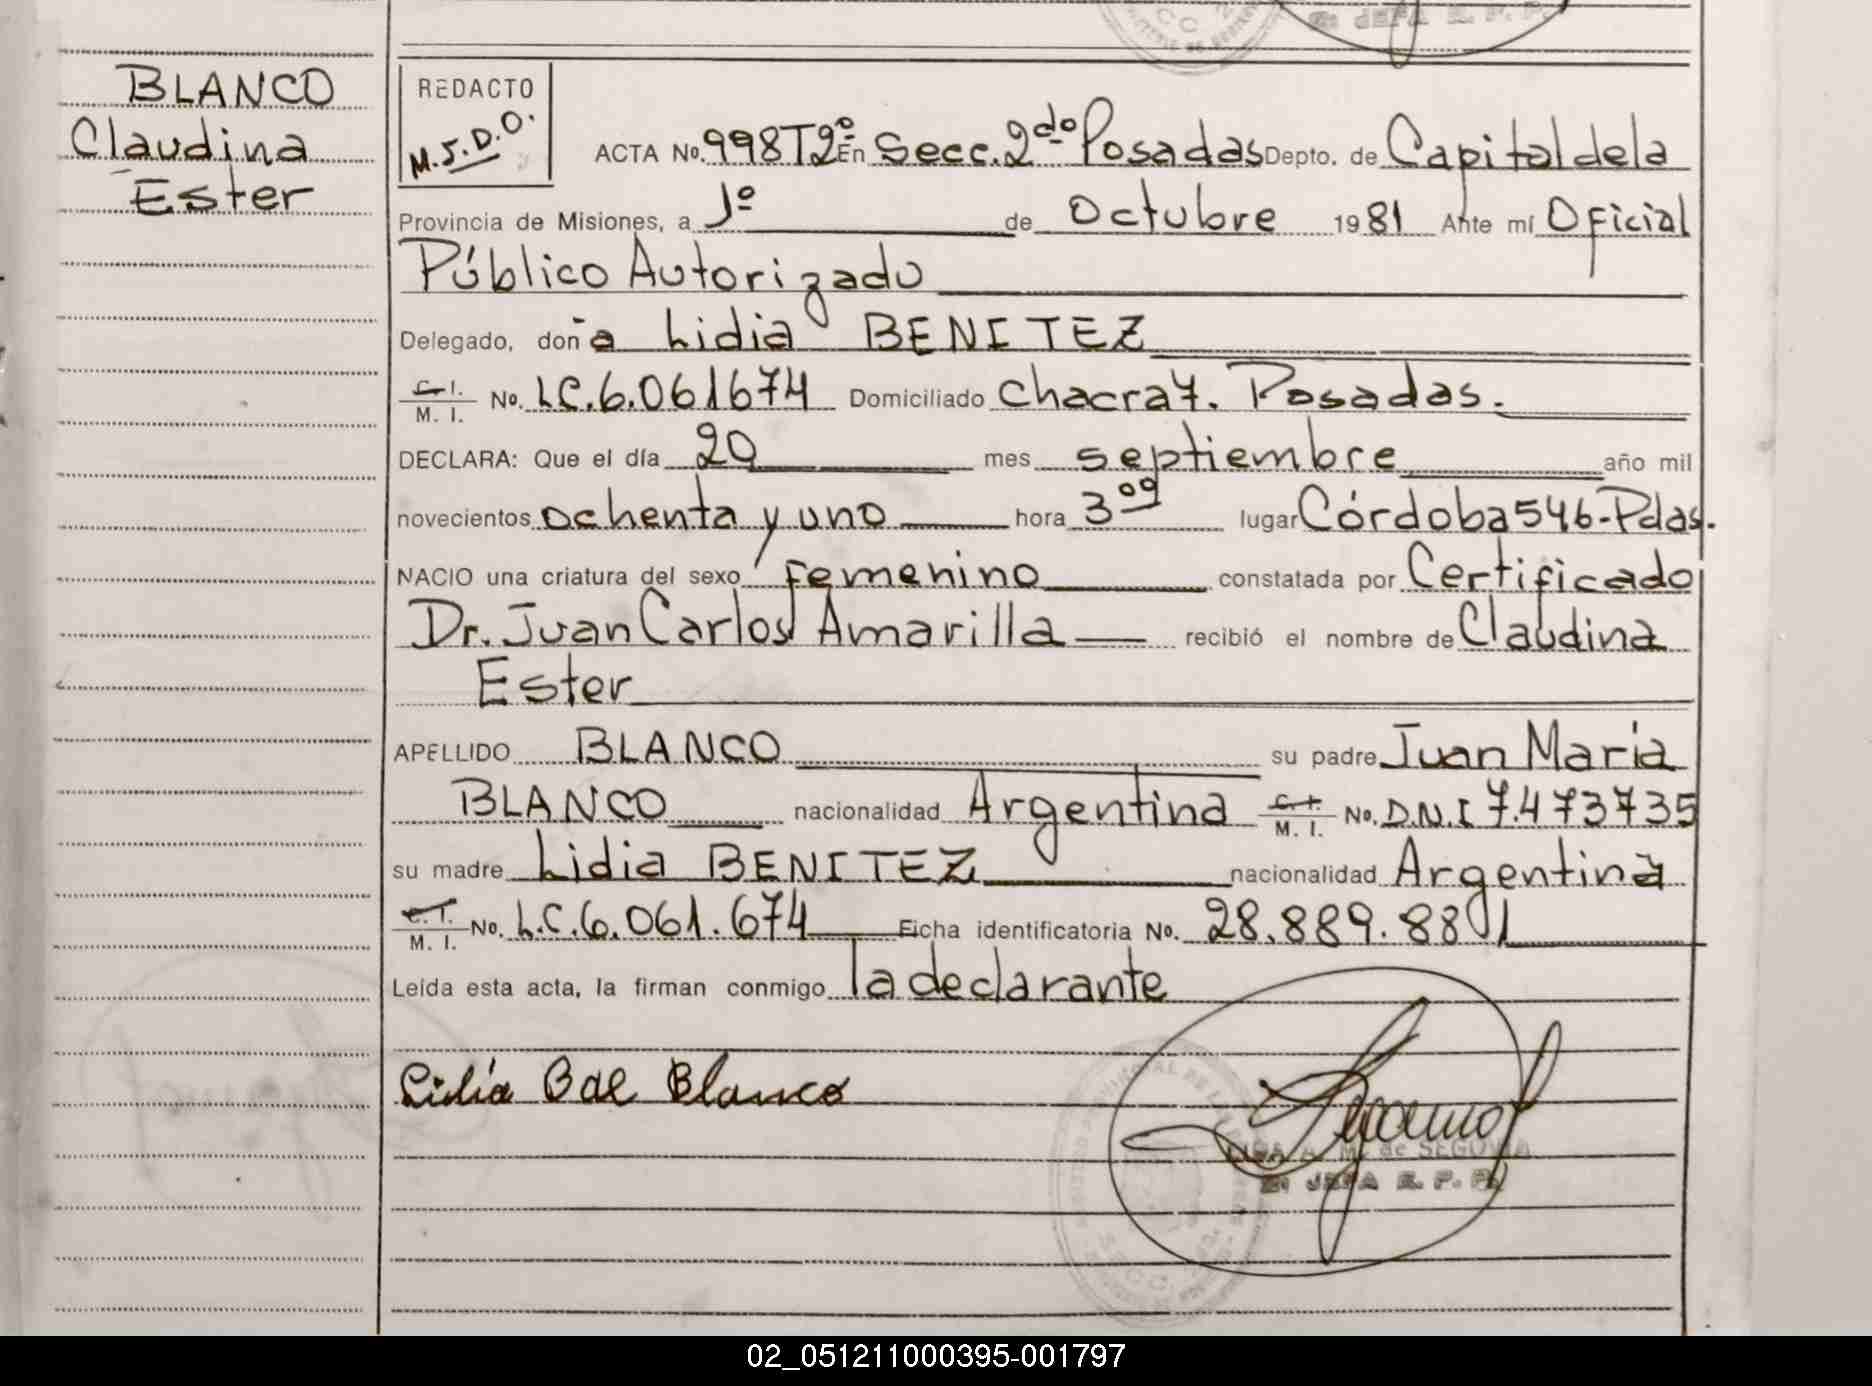 BLANCO
Claudina
Ester
REDACTO
M.J.D.O.
ACTA No. 998T2º En Secc. 2do Posadas Depto. de Capital dela
Provincia de Misiones, a 1º de Octubre 1981 Ante mí Oficial
Público Autorizado
Delegado, doña Lidia BENITEZ
C.I. M.I. No. LC.6.061674 Domiciliado Chacra 7. Posadas.
DECLARA: Que el día 20 mes septiembre año mil
novecientos ochenta y uno hora 3 00 lugar Córdoba 546-Pdas.
NACIO una criatura del sexo femenino constatada por Certificado
Dr. Juan Carlos Amarilla recibió el nombre de Claudina
Ester
APELLIDO BLANCO su padre Juan María
BLANCO nacionalidad Argentina C.I. M.I. No. D.N.I 7.473735
su madre Lidia BENITEZ nacionalidad Argentina
C.I. M.I. No. L.C.6.061.674 Ficha identificatoria No. 28.889.881
Leída esta acta, la firman conmigo la declarante
Lidia B de Blanco
A. M. de SEGOVIA
JEFA R. P. P.
02_051211000395-001797